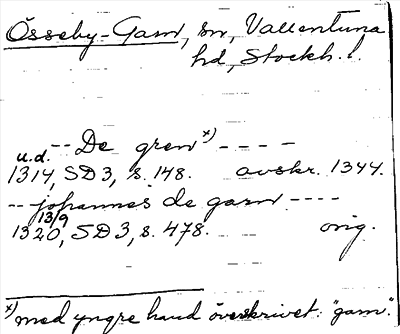 Össeby-Garn, sn, Vallentuna
hd, Stockh. l.
-- De gren x) - - - -
u.d.
1314, SD 3, s. 148. avskr. 1344.
-- johannes de garn - - - -
13/9
1320, SD 3, s. 478. orig.
x) med yngre hand överskrivet: "garn".